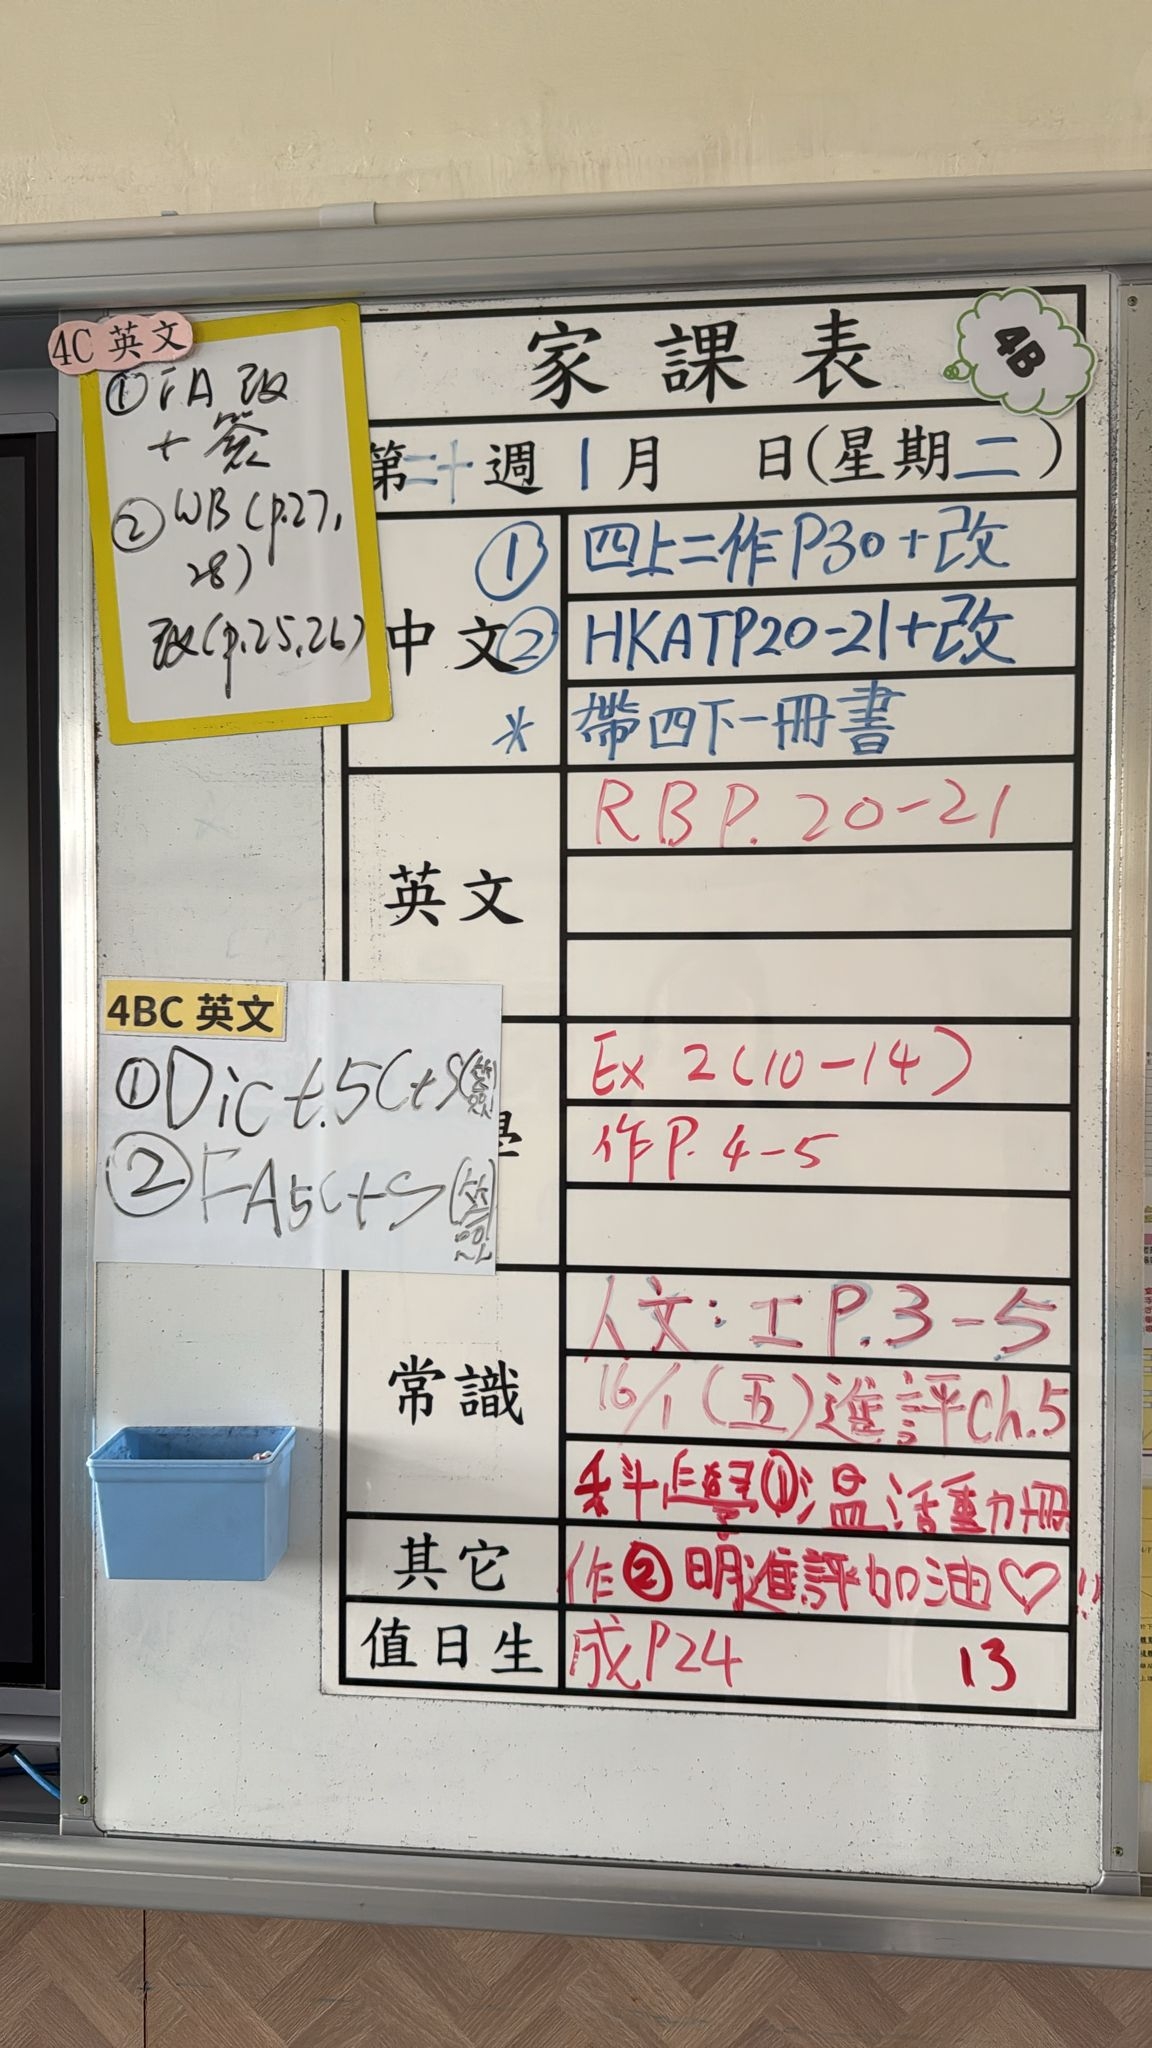 家課表
4B
第二十週 1月 日(星期二)
中文
① 四上二作P30+改
② HKATP20-21+改
* 帶四下一冊書
英文
RB P. 20-21
Ex 2(10-14)
作P. 4-5
常識
人文: 工P.3-5
16/1(五)進評Ch.5
科學①溫活動冊
其它
作②明進評加油♡!!
值日生
成P24 13
4C 英文
①FA改
+簽
②WB(p.27,
28)
改(p.25,26)
4BC 英文
①Dict.5C+S(簽)
②FA5C+S(簽)